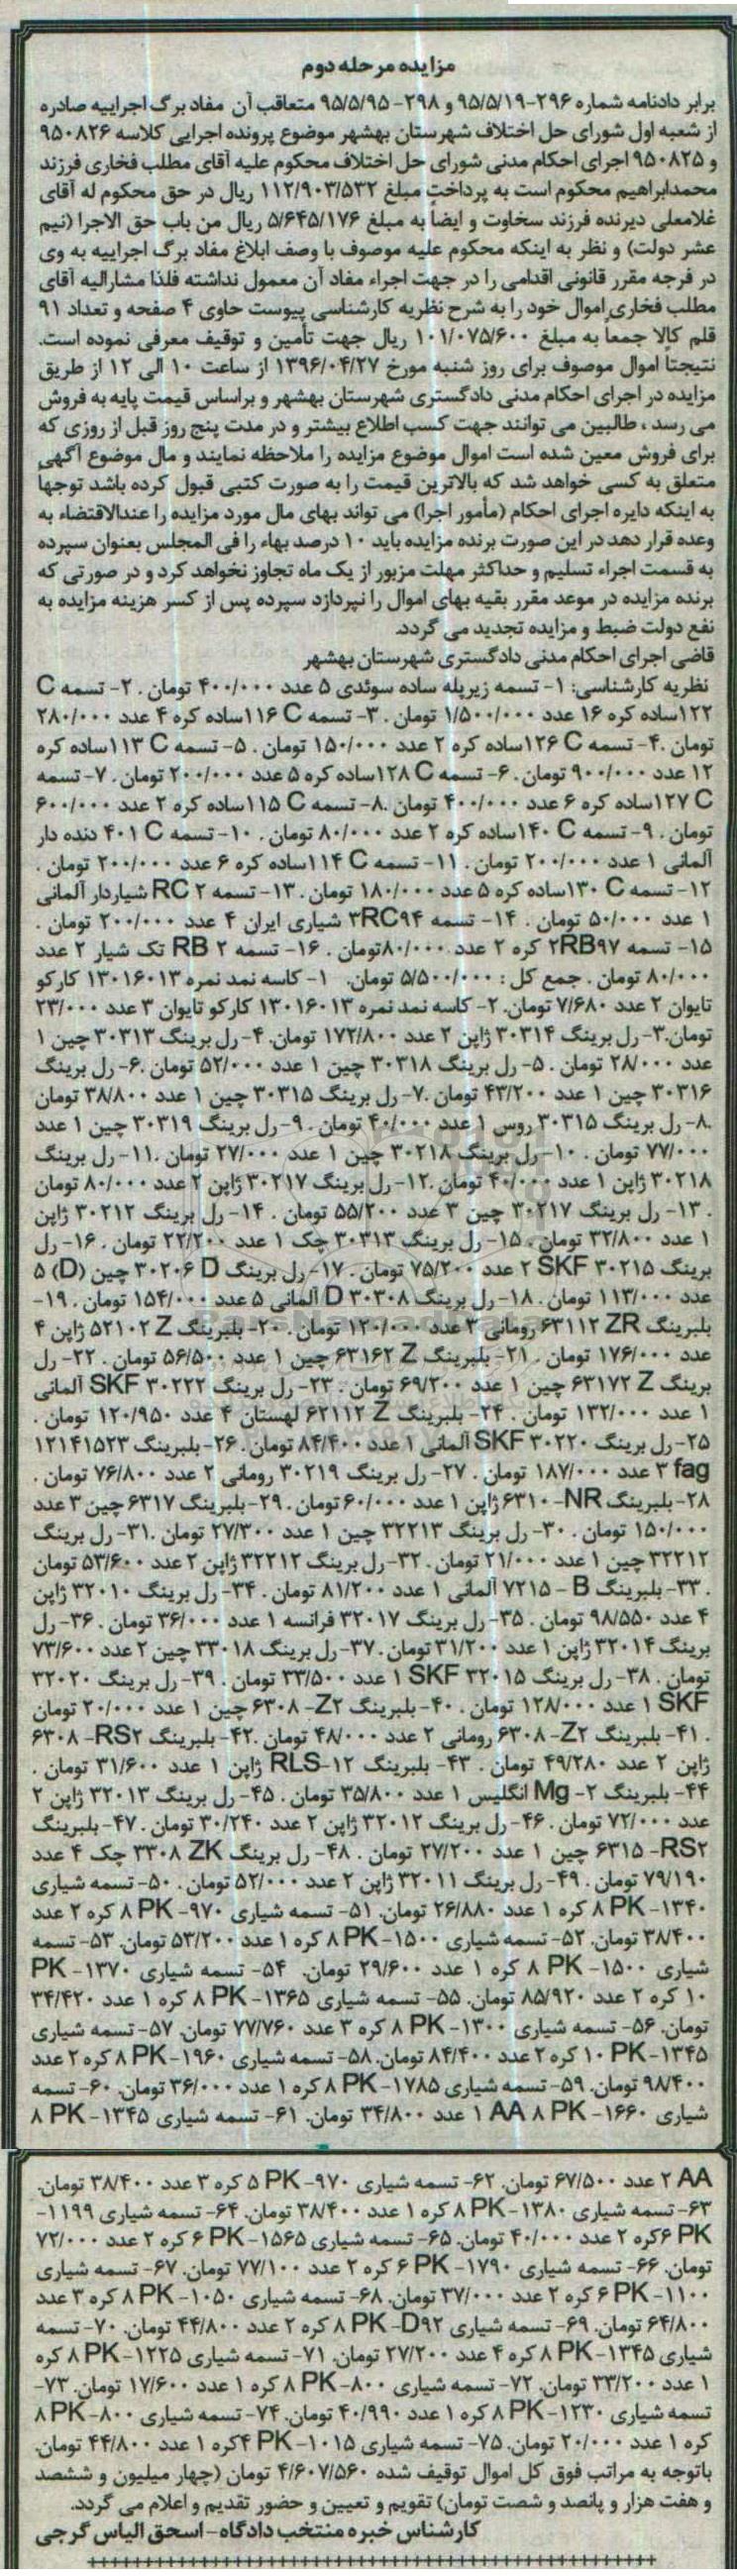 مزایده مرحله دوم
برابر دادنامه شماره ۲۹۶-۹۵/۵/۱۹ و ۲۹۸- ۹۵/۵/۹۵ متعاقب آن مفاد برگ اجراییه صادره
از شعبه اول شورای حل اختلاف شهرستان بهشهر موضوع پرونده اجرایی کلاسه ۹۵۰۸۲۶
و ۹۵۰۸۲۵ اجرای احکام مدنی شورای حل اختلاف محکوم علیه آقای مطلب فخاری فرزند
محمدابراهیم محکوم است به پرداخت مبلغ ۱۱۲/۹۰۳/۵۳۲ ریال در حق محکوم له آقای
غلامعلی دیرنده فرزند سخاوت و ایضاً به مبلغ ۵/۶۴۵/۱۷۶ ریال من باب حق الاجرا (نیم
عشر دولت) و نظر به اینکه محکوم علیه موصوف با وصف ابلاغ مفاد برگ اجراییه به وی
در فرجه مقرر قانونی اقدامی را در جهت اجراء مفاد آن معمول نداشته فلذا مشارالیه آقای
مطلب فخاری اموال خود را به شرح نظریه کارشناسی پیوست حاوی ۴ صفحه و تعداد ۹۱
قلم کالا جمعاً به مبلغ ۱۰۱/۰۷۵/۶۰۰ ریال جهت تأمین و توقیف معرفی نموده است.
نتیجتاً اموال موصوف برای روز شنبه مورخ ۱۳۹۶/۰۴/۲۷ از ساعت ۱۰ الی ۱۲ از طریق
مزایده در اجرای احکام مدنی دادگستری شهرستان بهشهر و براساس قیمت پایه به فروش
می رسد ، طالبین می توانند جهت کسب اطلاع بیشتر و در مدت پنج روز قبل از روزی که
برای فروش معین شده است اموال موضوع مزایده را ملاحظه نمایند و مال موضوع آگهی
متعلق به کسی خواهد شد که بالاترین قیمت را به صورت کتبی قبول کرده باشد توجهاً
به اینکه دایره اجرای احکام (مأمور اجرا) می تواند بهای مال مورد مزایده را عندالاقتضاء به
وعده قرار دهد در این صورت برنده مزایده باید ۱۰ درصد بهاء را فی المجلس بعنوان سپرده
به قسمت اجراء تسلیم و حداکثر مهلت مزبور از یک ماه تجاوز نخواهد کرد و در صورتی که
برنده مزایده در موعد مقرر بقیه بهای اموال را نپردازد سپرده پس از کسر هزینه مزایده به
نفع دولت ضبط و مزایده تجدید می گردد.
قاضی اجرای احکام مدنی دادگستری شهرستان بهشهر
نظریه کارشناسی: ۱- تسمه زیرپله ساده سوئدی ۵ عدد ۴۰۰/۰۰۰ تومان . ۲- تسمه C
۱۲۲ساده کره ۱۶ عدد ۱/۵۰۰/۰۰۰ تومان . ۳- تسمه C ۱۱۶ساده کره ۴ عدد ۲۸۰/۰۰۰
تومان .۴- تسمه C ۱۲۶ساده کره ۲ عدد ۱۵۰/۰۰۰ تومان . ۵- تسمه C ۱۱۳ساده کره
۱۲ عدد ۹۰۰/۰۰۰ تومان . ۶- تسمه C ۱۲۸ساده کره ۵ عدد ۲۰۰/۰۰۰ تومان . ۷- تسمه
C ۱۲۷ساده کره ۶ عدد ۴۰۰/۰۰۰ تومان .۸- تسمه C ۱۱۵ساده کره ۲ عدد ۶۰۰/۰۰۰
تومان . ۹- تسمه C ۱۴۰ساده کره ۲ عدد ۸۰/۰۰۰ تومان . ۱۰- تسمه C ۴۰۱ دنده دار
آلمانی ۱ عدد ۲۰۰/۰۰۰ تومان . ۱۱- تسمه C ۱۱۴ساده کره ۶ عدد ۲۰۰/۰۰۰ تومان .
۱۲- تسمه C ۱۳۰ساده کره ۵ عدد ۱۸۰/۰۰۰ تومان . ۱۳- تسمه RC ۲ شیاردار آلمانی
۱ عدد ۵۰/۰۰۰ تومان . ۱۴- تسمه ۳RC۹۴ شیاری ایران ۴ عدد ۲۰۰/۰۰۰ تومان .
۱۵- تسمه ۲RB۹۷ کره ۲ عدد ۸۰/۰۰۰تومان . ۱۶- تسمه RB ۲ تک شیار ۲ عدد
۸۰/۰۰۰ تومان . جمع کل : ۵/۵۰۰/۰۰۰ تومان. ۱- کاسه نمد نمره ۱۳۰۱۶۰۱۳ کارکو
تایوان ۲ عدد ۷/۶۸۰ تومان. ۲- کاسه نمد نمره ۱۳۰۱۶۰۱۳ کارکو تایوان ۳ عدد ۲۳/۰۰۰
تومان.۳- رل برینگ ۳۰۳۱۴ ژاپن ۲ عدد ۱۷۲/۸۰۰ تومان. ۴- رل برینگ ۳۰۳۱۳ چین ۱
عدد ۲۸/۰۰۰ تومان . ۵- رل برینگ ۳۰۳۱۸ چین ۱ عدد ۵۲/۰۰۰ تومان .۶- رل برینگ
۳۰۳۱۶ چین ۱ عدد ۴۳/۲۰۰ تومان .۷- رل برینگ ۳۰۳۱۵ چین ۱ عدد ۳۸/۸۰۰ تومان
.۸- رل برینگ ۳۰۳۱۵ روس ۱ عدد ۴۰/۰۰۰ تومان . ۹- رل برینگ ۳۰۳۱۹ چین ۱ عدد
۷۷/۰۰۰ تومان . ۱۰- رل برینگ ۳۰۲۱۸ چین ۱ عدد ۲۷/۰۰۰ تومان .۱۱- رل برینگ
۳۰۲۱۸ ژاپن ۱ عدد ۴۰/۰۰۰ تومان .۱۲- رل برینگ ۳۰۲۱۷ ژاپن ۲ عدد ۸۰/۰۰۰ تومان
. ۱۳- رل برینگ ۳۰۲۱۷ چین ۳ عدد ۵۵/۲۰۰ تومان . ۱۴- رل برینگ ۳۰۲۱۲ ژاپن
۱ عدد ۳۲/۸۰۰ تومان . ۱۵- رل برینگ ۳۰۳۱۳ چک ۱ عدد ۲۲/۲۰۰ تومان . ۱۶- رل
برینگ SKF ۳۰۲۱۵ ۲ عدد ۷۵/۲۰۰ تومان . ۱۷- رل برینگ D ۳۰۲۰۶ چین (D) ۵
عدد ۱۱۳/۰۰۰ تومان . ۱۸- رل برینگ D ۳۰۳۰۸ آلمانی ۵ عدد ۱۵۴/۰۰۰ تومان . ۱۹-
بلبرینگ ZR ۶۳۱۱۲ رومانی ۳ عدد ۱۲۰/۰۰۰ تومان . ۲۰- بلبرینگ Z ۵۲۱۰۲ ژاپن ۴
عدد ۱۷۶/۰۰۰ تومان . ۲۱- بلبرینگ Z ۶۳۱۶۲ چین ۱ عدد ۵۶/۵۰۰ تومان . ۲۲- رل
برینگ Z ۶۳۱۷۲ چین ۱ عدد ۶۹/۲۰۰ تومان . ۲۳- رل برینگ SKF ۳۰۲۲۲ آلمانی
۱ عدد ۱۳۲/۰۰۰ تومان . ۲۴- بلبرینگ Z ۶۲۱۱۲ لهستان ۴ عدد ۱۲۰/۹۵۰ تومان .
۲۵- رل برینگ SKF ۳۰۲۲۰ آلمانی ۱ عدد ۸۴/۴۰۰ تومان . ۲۶- بلبرینگ ۱۲۱۴۱۵۲۳
fag ۳ عدد ۱۸۷/۰۰۰ تومان . ۲۷- رل برینگ ۳۰۲۱۹ رومانی ۲ عدد ۷۶/۸۰۰ تومان .
۲۸- بلبرینگ NR-۶۳۱۰ ژاپن ۱ عدد ۶۰/۰۰۰ تومان . ۲۹- بلبرینگ ۶۳۱۷ چین ۳ عدد
۱۵۰/۰۰۰ تومان . ۳۰- رل برینگ ۳۲۲۱۳ چین ۱ عدد ۲۷/۳۰۰ تومان .۳۱- رل برینگ
۳۲۲۱۲ چین ۱ عدد ۲۱/۰۰۰ تومان . ۳۲- رل برینگ ۳۲۲۱۲ ژاپن ۲ عدد ۵۳/۶۰۰ تومان
. ۳۳- بلبرینگ B - ۷۲۱۵ آلمانی ۱ عدد ۸۱/۲۰۰ تومان . ۳۴- رل برینگ ۳۲۰۱۰ ژاپن
۴ عدد ۹۸/۵۵۰ تومان . ۳۵- رل برینگ ۳۲۰۱۷ فرانسه ۱ عدد ۳۶/۰۰۰ تومان . ۳۶- رل
برینگ ۳۲۰۱۴ ژاپن ۱ عدد ۳۱/۲۰۰ تومان . ۳۷- رل برینگ ۳۳۰۱۸ چین ۲ عدد ۷۳/۶۰۰
تومان . ۳۸- رل برینگ SKF ۳۲۰۱۵ ۱ عدد ۳۳/۵۰۰ تومان . ۳۹- رل برینگ ۳۲۰۲۰
SKF ۱ عدد ۱۲۸/۰۰۰ تومان . ۴۰- بلبرینگ ۶۳۰۸ -Z۲ چین ۱ عدد ۲۰/۰۰۰ تومان
. ۴۱- بلبرینگ ۶۳۰۸-Z۲ رومانی ۲ عدد ۴۸/۰۰۰ تومان .۴۲- بلبرینگ RS۲- ۶۳۰۸
ژاپن ۲ عدد ۴۹/۲۸۰ تومان . ۴۳- بلبرینگ RLS-۱۲ ژاپن ۱ عدد ۳۱/۶۰۰ تومان .
۴۴- بلبرینگ Mg -۲ انگلیس ۱ عدد ۳۵/۸۰۰ تومان . ۴۵- رل برینگ ۳۲۰۱۳ ژاپن ۲
عدد ۷۲/۰۰۰ تومان . ۴۶- رل برینگ ۳۲۰۱۲ ژاپن ۲ عدد ۳۰/۲۴۰ تومان . ۴۷- بلبرینگ
RS۲- ۶۳۱۵ چین ۱ عدد ۲۷/۲۰۰ تومان . ۴۸- رل برینگ ZK ۳۳۰۸ چک ۴ عدد
۷۹/۱۹۰ تومان . ۴۹- رل برینگ ۳۲۰۱۱ ژاپن ۲ عدد ۵۲/۰۰۰ تومان . ۵۰- تسمه شیاری
۸ PK -۱۳۴۰ کره ۱ عدد ۲۶/۸۸۰ تومان. ۵۱- تسمه شیاری ۸ PK -۹۷۰ کره ۲ عدد
۳۸/۴۰۰ تومان. ۵۲- تسمه شیاری ۸ PK -۱۵۰۰ کره ۱ عدد ۵۳/۲۰۰ تومان. ۵۳- تسمه
شیاری ۸ PK -۱۵۰۰ کره ۱ عدد ۲۹/۶۰۰ تومان. ۵۴- تسمه شیاری PK -۱۳۷۰
۱۰ کره ۲ عدد ۸۵/۹۲۰ تومان. ۵۵- تسمه شیاری ۸ PK -۱۳۶۵ کره ۱ عدد ۳۴/۴۲۰
تومان. ۵۶- تسمه شیاری ۸ PK -۱۳۰۰ کره ۳ عدد ۷۷/۷۶۰ تومان. ۵۷- تسمه شیاری
۱۰ PK -۱۳۴۵ کره ۲ عدد ۸۴/۴۰۰ تومان. ۵۸- تسمه شیاری ۸ PK -۱۹۶۰ کره ۲ عدد
۹۸/۴۰۰ تومان. ۵۹- تسمه شیاری ۸ PK -۱۷۸۵ کره ۱ عدد ۳۶/۰۰۰ تومان. ۶۰- تسمه
شیاری ۸ PK -۱۶۶۰ AA ۱ عدد ۳۴/۸۰۰ تومان. ۶۱- تسمه شیاری ۸ PK -۱۳۴۵
AA ۲ عدد ۶۷/۵۰۰ تومان. ۶۲- تسمه شیاری ۵ PK -۹۷۰ کره ۳ عدد ۳۸/۴۰۰ تومان.
۶۳- تسمه شیاری ۸ PK -۱۳۸۰ کره ۱ عدد ۳۸/۴۰۰ تومان. ۶۴- تسمه شیاری ۱۱۹۹-
۶ PKکره ۲ عدد ۴۰/۰۰۰ تومان. ۶۵- تسمه شیاری ۶ PK -۱۵۶۵ کره ۲ عدد ۷۲/۰۰۰
تومان. ۶۶- تسمه شیاری ۶ PK -۱۷۹۰ کره ۲ عدد ۷۷/۱۰۰ تومان. ۶۷- تسمه شیاری
۶ PK -۱۱۰۰ کره ۲ عدد ۳۷/۰۰۰ تومان. ۶۸- تسمه شیاری ۸ PK -۱۰۵۰ کره ۳ عدد
۶۴/۸۰۰ تومان. ۶۹- تسمه شیاری ۸ PK -D۹۲ کره ۲ عدد ۴۴/۸۰۰ تومان. ۷۰- تسمه
شیاری ۸ PK -۱۳۴۵ کره ۴ عدد ۲۷/۲۰۰ تومان. ۷۱- تسمه شیاری ۸ PK -۱۲۲۵ کره
۱ عدد ۳۳/۲۰۰ تومان. ۷۲- تسمه شیاری ۸ PK -۸۰۰ کره ۱ عدد ۱۷/۶۰۰ تومان. ۷۳-
تسمه شیاری ۸ PK -۱۲۳۰ کره ۱ عدد ۴۰/۹۹۰ تومان. ۷۴- تسمه شیاری ۸ PK -۸۰۰
کره ۱ عدد ۲۰/۰۰۰ تومان. ۷۵- تسمه شیاری ۴ PK -۱۰۱۵کره ۱ عدد ۴۴/۸۰۰ تومان.
باتوجه به مراتب فوق کل اموال توقیف شده ۴/۶۰۷/۵۶۰ تومان (چهار میلیون و ششصد
و هفت هزار و پانصد و شصت تومان) تقویم و تعیین و حضور تقدیم و اعلام می گردد.
کارشناس خبره منتخب دادگاه- اسحق الیاس گرجی